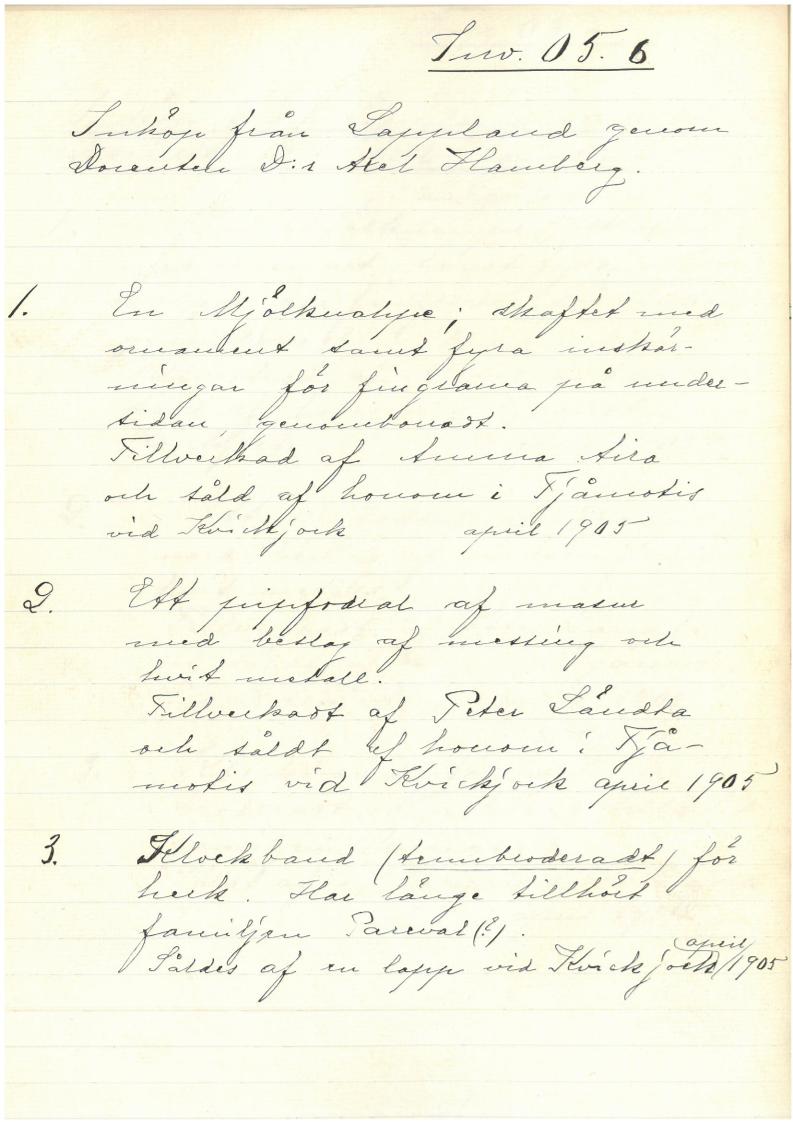 Inv. 05.6
Inköp från Lappland genom
Docenten D:r Axel Hamberg.
1. En Mjölknappe; skaftet med
ornament samt fyra inskär-
ningar för fingrarna på under-
sidan, genombonadt.
Tillverkad af Amma Aira
och såld af honom i Tjåmotis
vid Kvickjock april 1905
2. Ett pipfodral af masur
med beslag af messing och
hvit metall.
Tillverkadt af Peter Ländta
och såldt af honom i Tjå-
motis vid Kvickjock april 1905
3. Klockband (tennbroderadt) för
herk. Har länge tillhört
familjen Pareval (?).
Såldes af en lapp vid Kvickjock april/1905